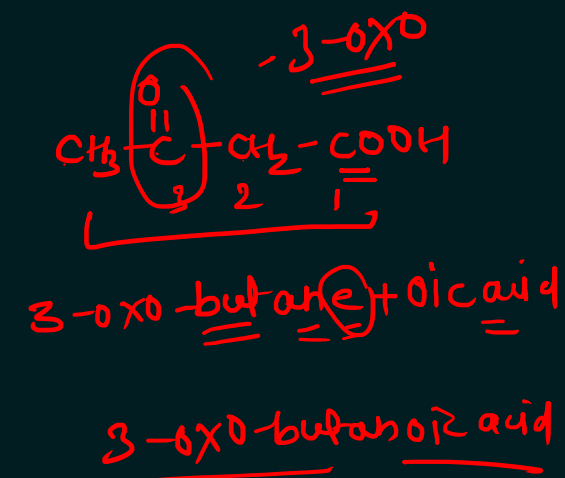 -3-oxo
O
||
CH3-C-CH2-COOH
3 2 1
3-oxo-butane+oic acid
3-oxo-butanoic acid